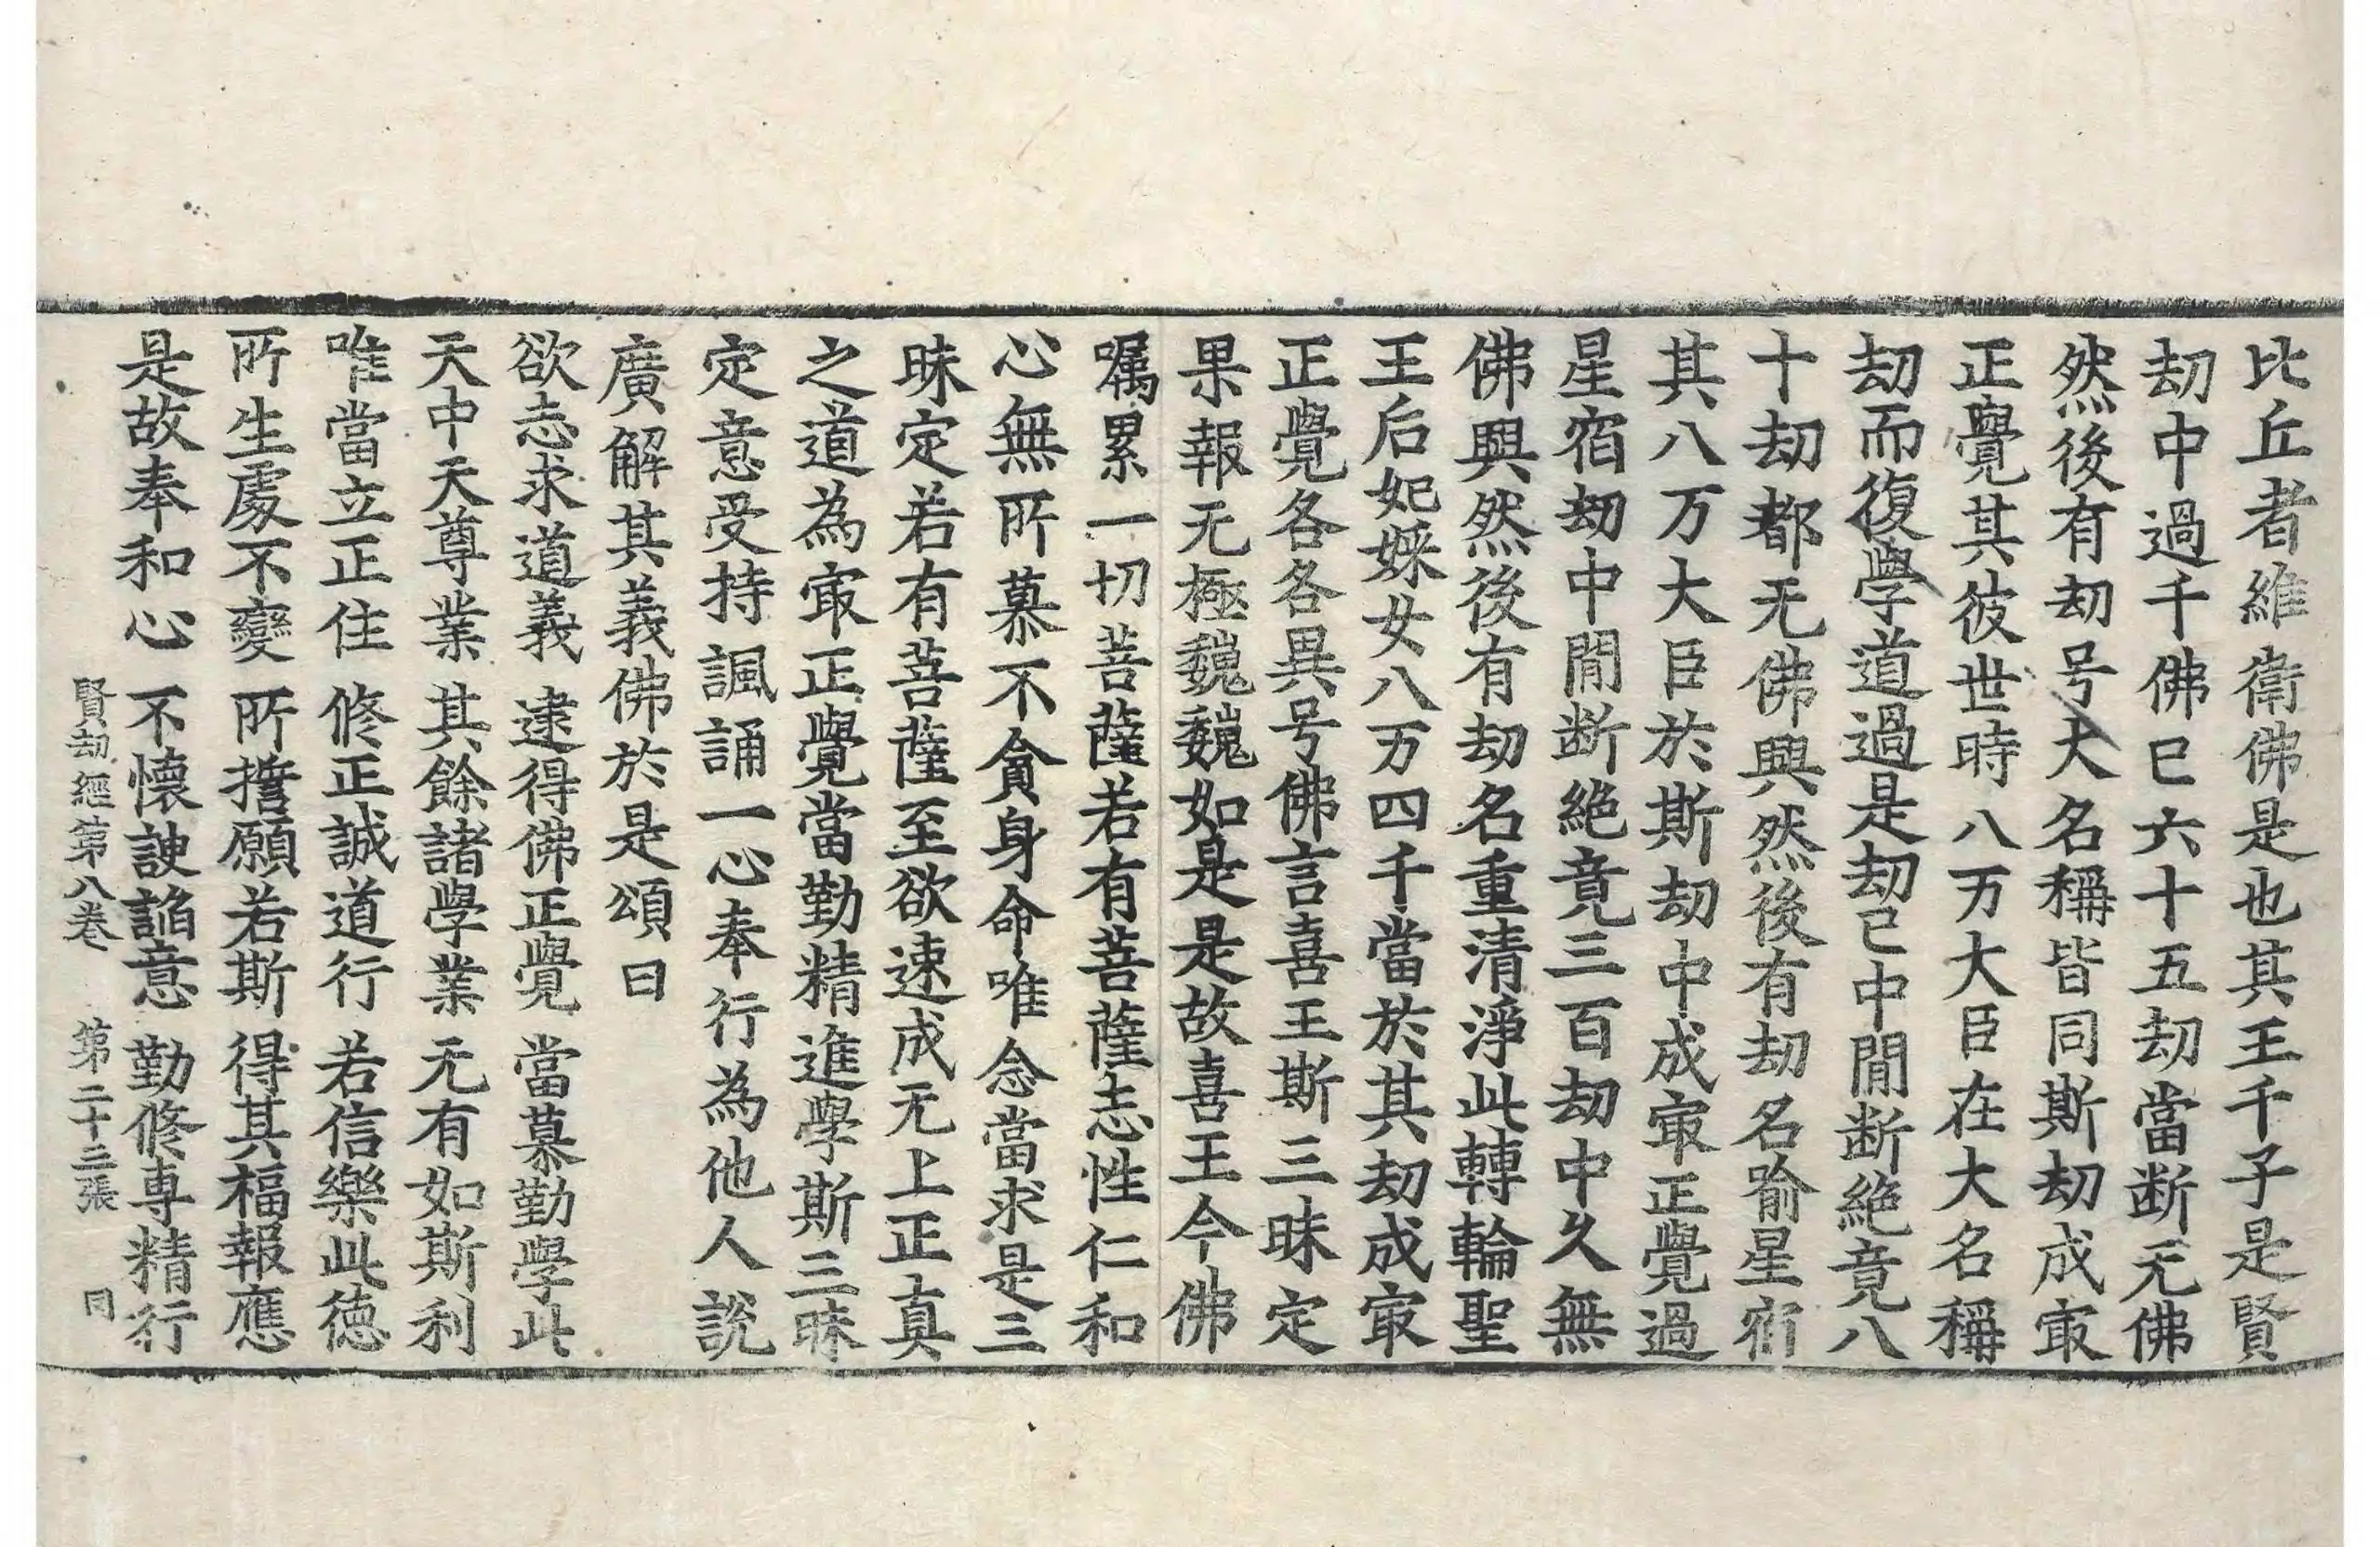 比丘者維衛佛是也其王千子是賢
劫中過千佛已六十五劫當断无佛
然後有劫号大名稱皆同斯劫成㝡
正覺其彼世時八万大臣在大名稱
劫而復學道過是劫已中閒断絶竟八
十劫都无佛興然後有劫名喻星宿
其八万大臣於斯劫中成㝡正覺過
星宿劫中閒断絶竟三百劫中久無
佛興然後有劫名重清淨此轉輪聖
王后妃婇女八万四千當於其劫成㝡
正覺各各異号佛言喜王斯三昧定
果報无極巍巍如是是故喜王今佛
囑累一切菩薩若有菩薩志性仁和
心無所慕不貪身命唯念當求是三
昧定若有菩薩至欲速成无上正真
之道為㝡正覺當勤精進學斯三昧
定意受持諷誦一心奉行為他人說
廣解其義佛於是頌曰
欲志求道義　逮得佛正覺　當慕勤學此
天中天尊業　其餘諸學業　无有如斯利
唯當立正住　修正誠道行　若信樂此德
所生處不變　所擔願若斯　得其福報應
是故奉和心　不懷諛諂意　勤修專精行
賢劫經第八卷　第二十三張　同